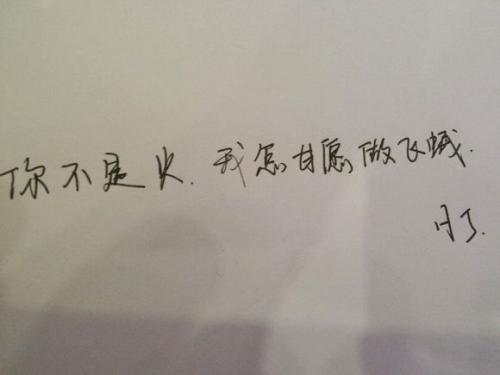 你不是火.我怎甘愿做飞蛾.